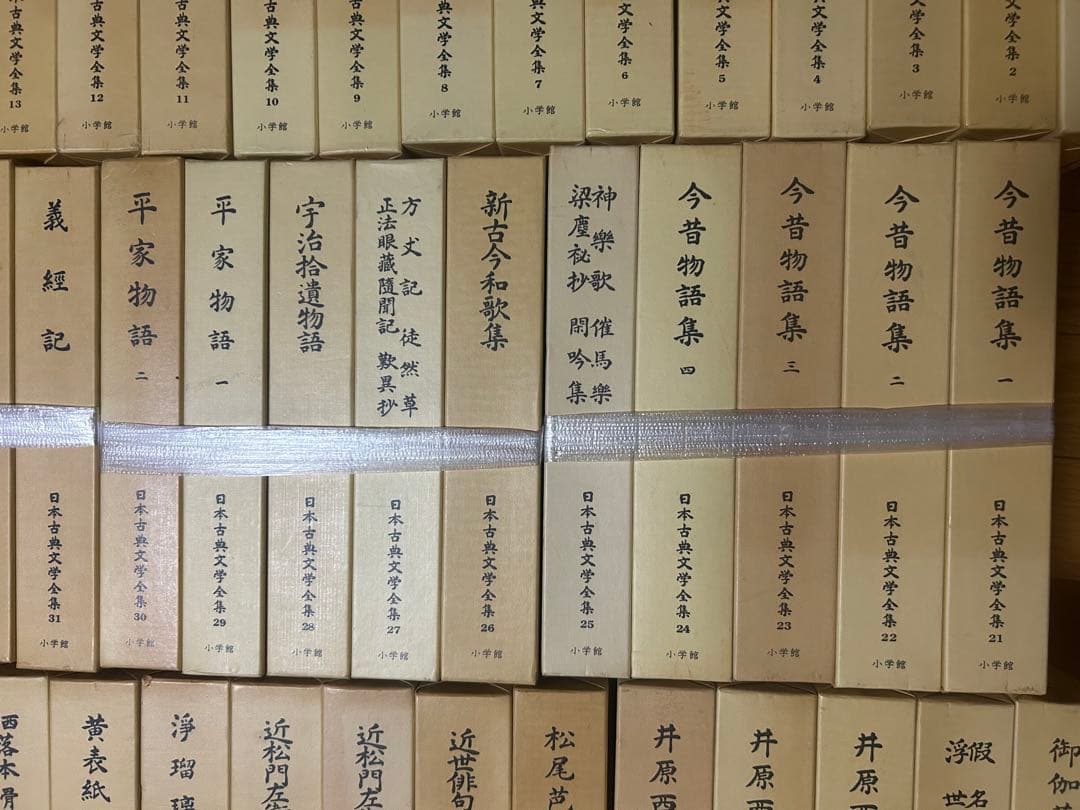 古典文学全集
2
小学館
古典文学全集
3
小学館
古典文学全集
4
小学館
古典文学全集
5
小学館
古典文学全集
6
小学館
古典文学全集
7
小学館
古典文学全集
8
小学館
古典文学全集
9
小学館
古典文学全集
10
小学館
古典文学全集
11
小学館
古典文学全集
12
小学館
古典文学全集
13
小学館
今昔物語集 一
日本古典文学全集
21
小学館
今昔物語集 二
日本古典文学全集
22
小学館
今昔物語集 三
日本古典文学全集
23
小学館
今昔物語集 四
日本古典文学全集
24
小学館
神樂歌 催馬樂
梁塵祕抄 閑吟集
日本古典文学全集
25
小学館
新古今和歌集
日本古典文学全集
26
小学館
方丈記 徒然草
正法眼藏隨聞記 歎異抄
日本古典文学全集
27
小学館
宇治拾遺物語
日本古典文学全集
28
小学館
平家物語 一
日本古典文学全集
29
小学館
平家物語 二
日本古典文学全集
30
小学館
義經記
日本古典文学全集
31
小学館
御伽
假名
浮世
井原西
井原西
井原西
松尾芭
近世俳句
近松門左
近松門左
淨瑠璃
黄表紙
洒落本